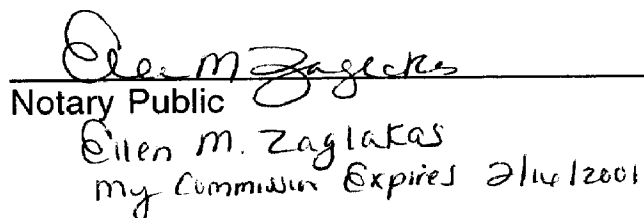 Ellen M Zaglakas
Notary Public
Ellen M. Zaglakas
my Commission Expires 2/14/2001